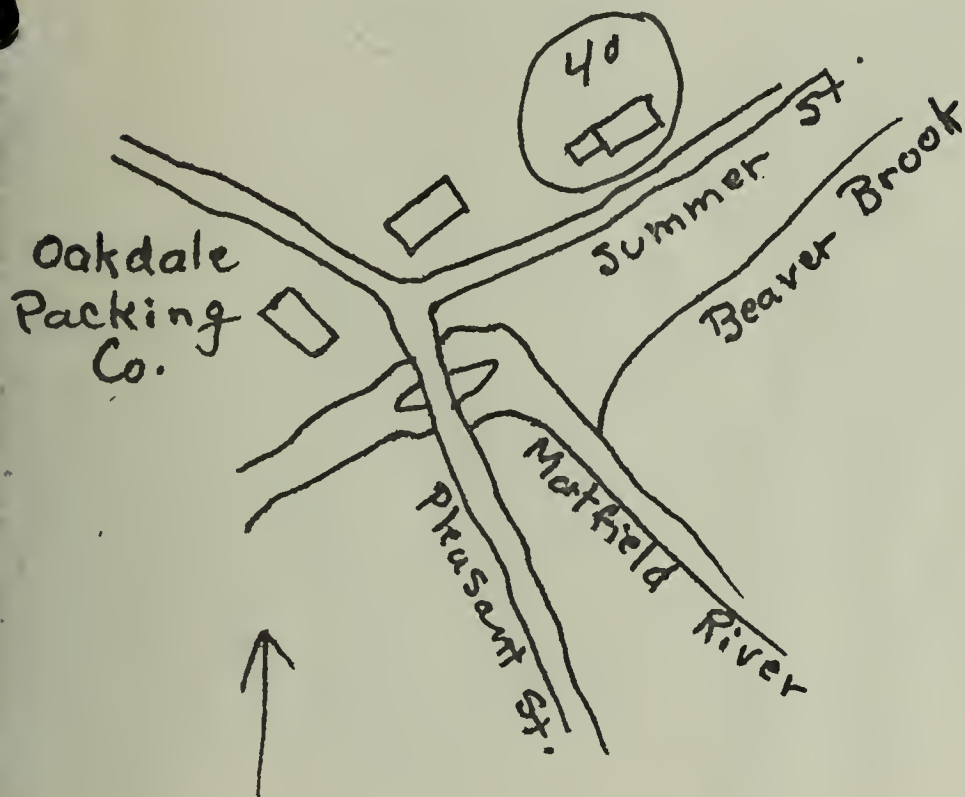 40
Summer St.
Beaver Brook
Oakdale
Packing
Co.
Matfield River
Pleasant St.